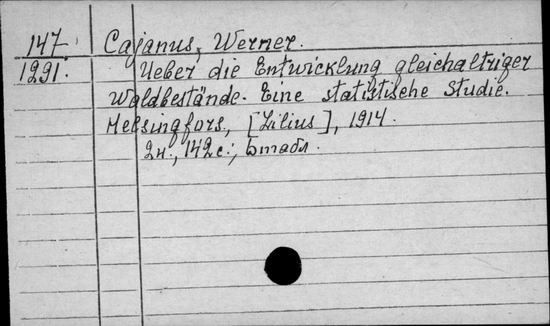 147 Cajanus, Werner.
1291. Ueber die Entwicklung gleichaltriger
Waldbestände. Eine statistische Studie.
Helsingfors, [Lilius], 1914.
2н., 142 с.; 6табл.